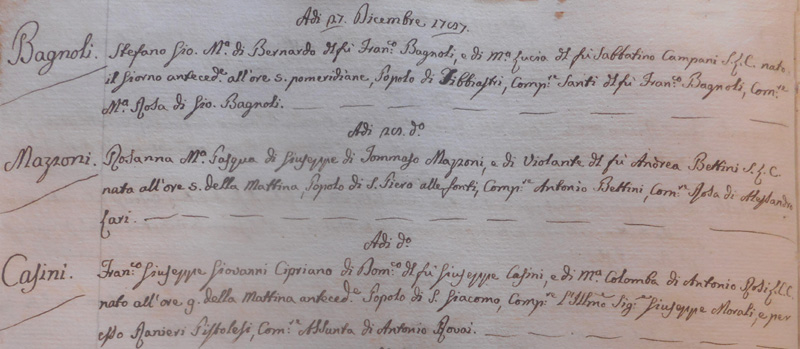 Adi 27. Dicembre 1787.
Bagnoli. Stefano Gio. Mª. di Bernardo del fu Fran.co Bagnoli, e di Mª. Lucia del fu Sabbatino Campani S.L.C. nato
il Giorno anteced.e all'ore 5. pomeridiane, Popolo di Tibbiastri, Comp.re Santi del fu Fran.co Bagnoli, Com.re
Mª. Rosa di Gio. Bagnoli.
Adi 28. d.o
Mazzoni. Rosanna Mª. Pasqua di Giuseppe di Tommaso Mazzoni, e di Violante del fu Andrea Bettini S.L.C.
nata all'ore 5. della Mattina, Popolo di S. Piero alle fonti, Comp.re Antonio Bettini, Com.re Rosa di Alessandro
Lari.
Adi d.o
Casini. Fran.co Giuseppe Giovanni Cipriano di Dom.co del fu Giuseppe Casini, e di Mª. Colomba di Antonio Rosi L.C.
nato all'ore 9. della Mattina anteced.e Popolo di S. Giacomo, Comp.re L'Illmo Sig.re Giuseppe Morali, e per
esso Ranieri Pistolesi, Com.re Assunta di Antonio Rovai.